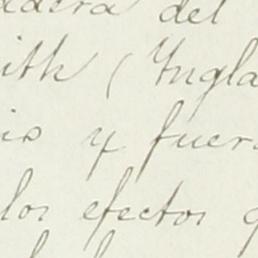 adera del
ith (Ingla
is y fuer
los efectos q